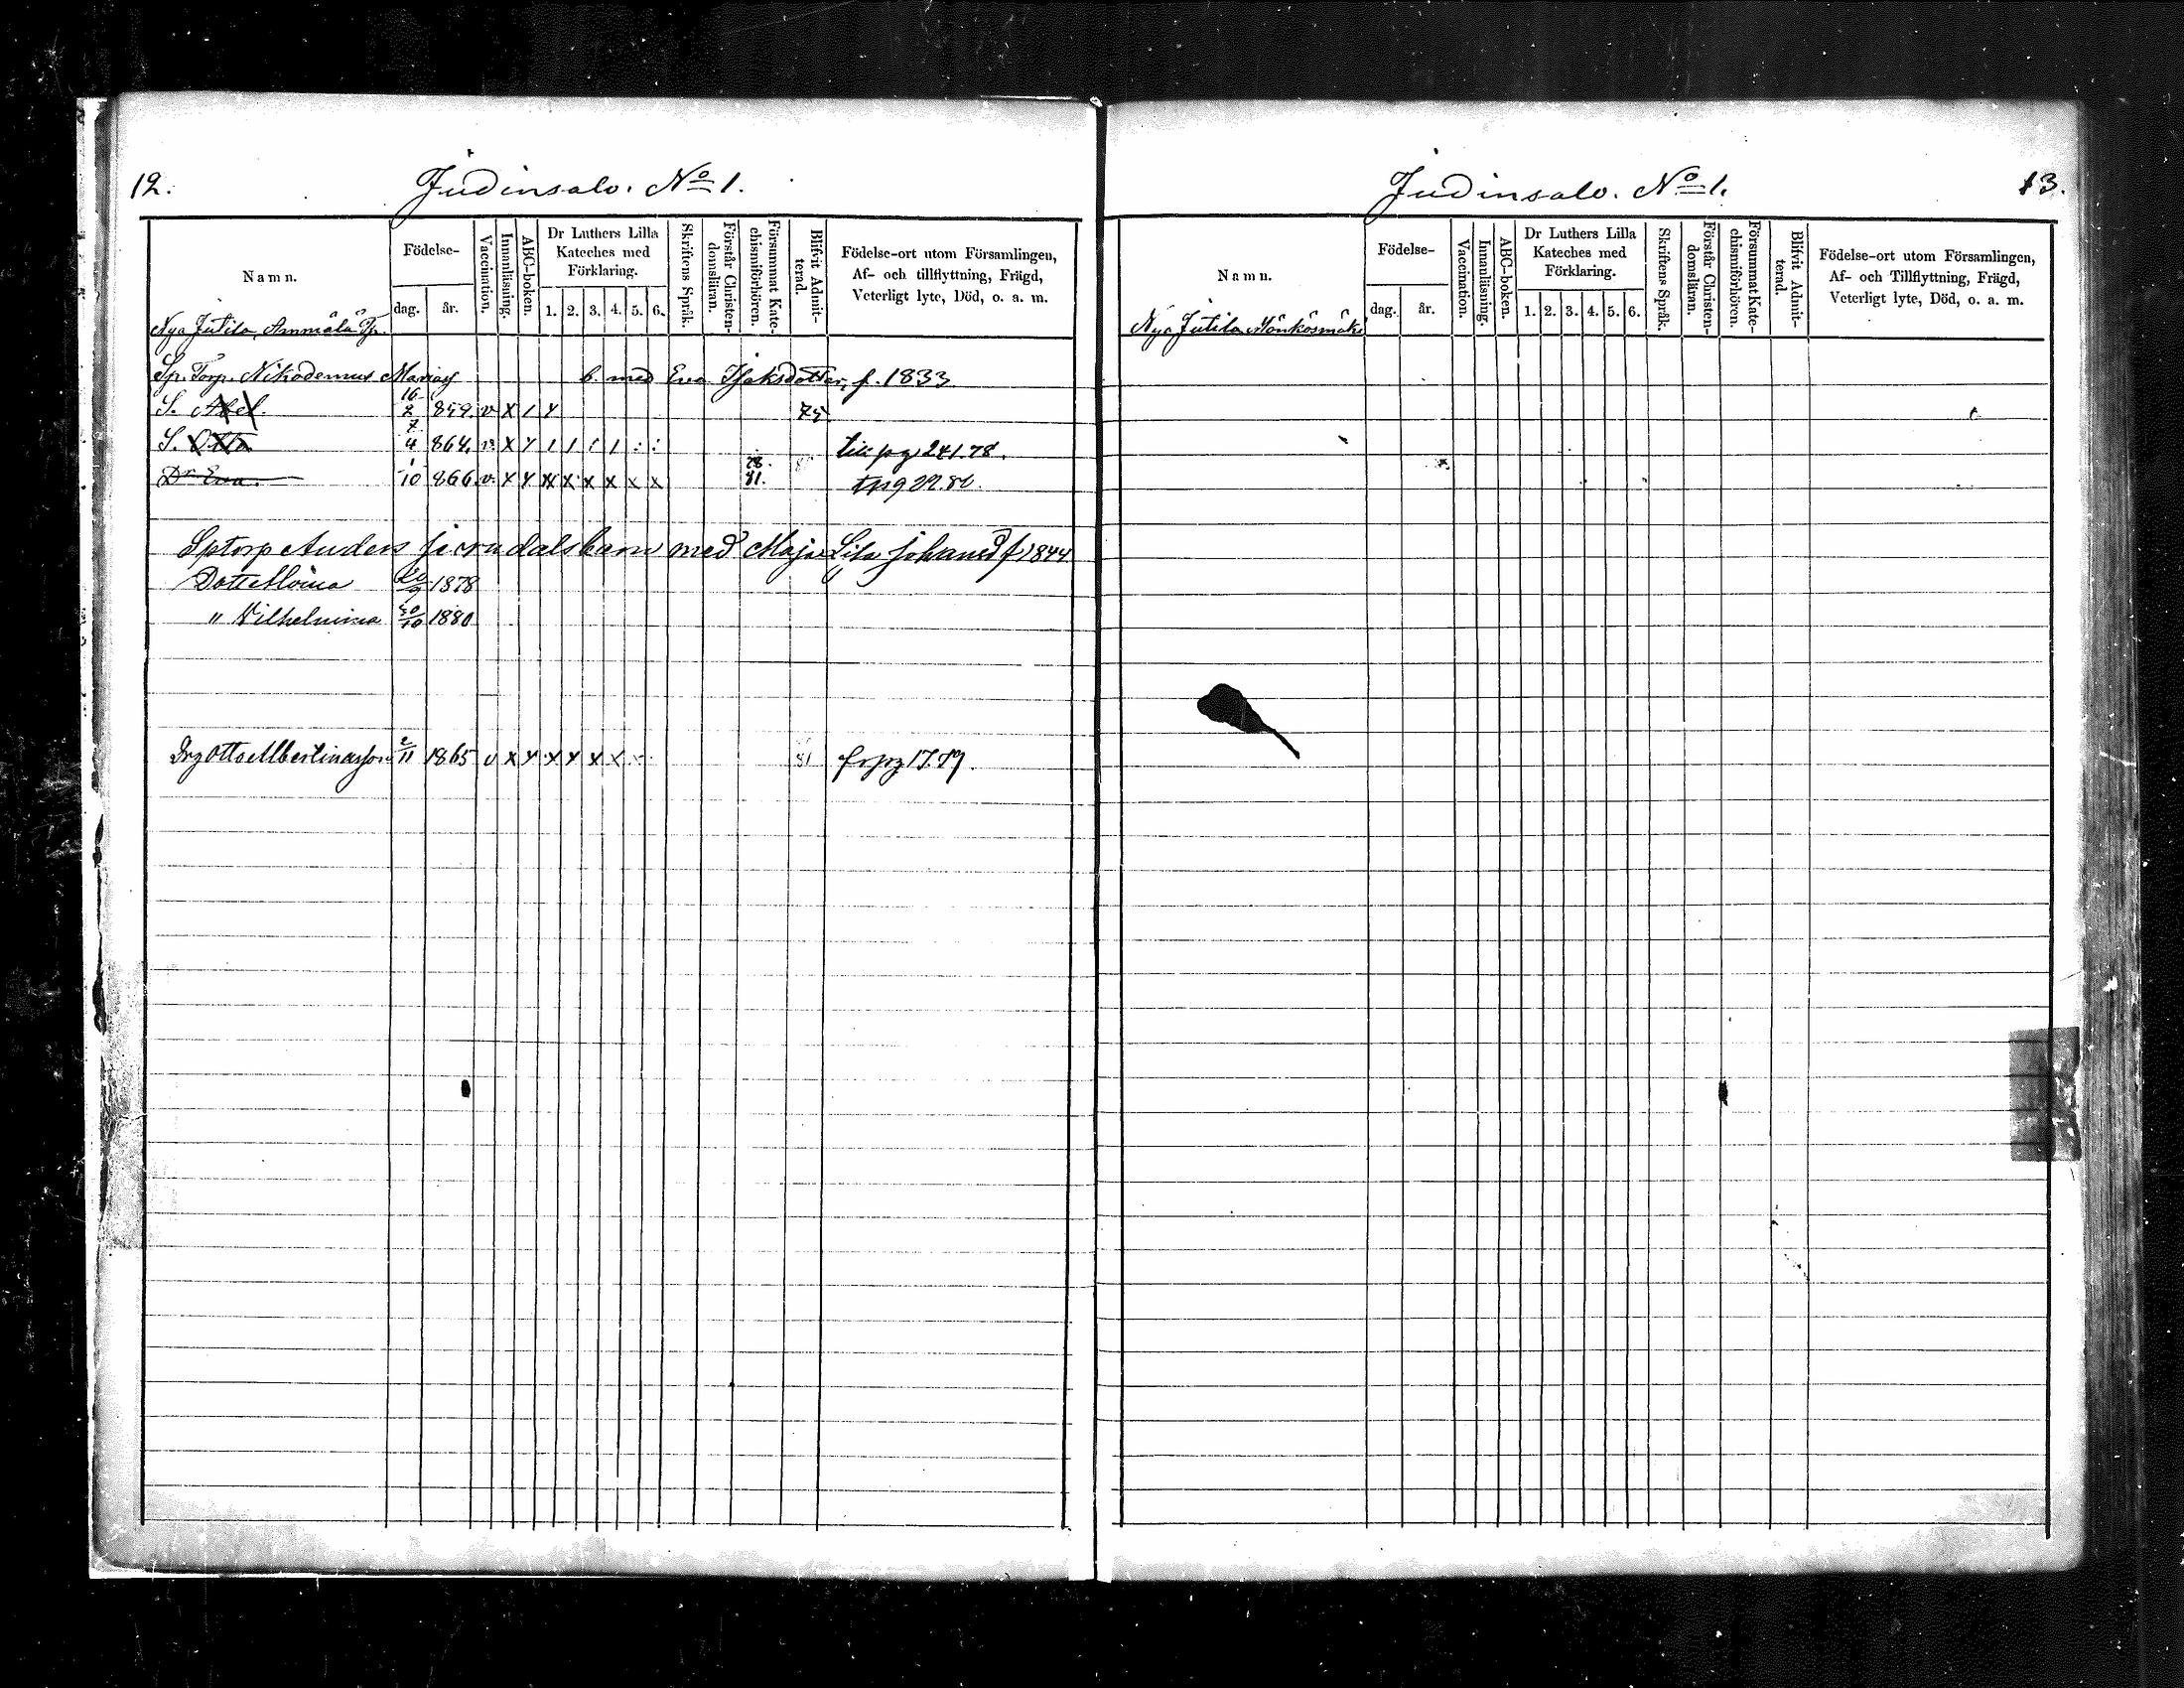 12. Judinsalo. No 1.
Namn. Födelse- dag. år. Vaccination. Innanläsning. ABC-boken. Dr Luthers Lilla Kateches med Förklaring. 1. 2. 3. 4. 5. 6. Skriftens Språk. Förstår Christendomsläran. Försummat Katechismiförhören. Blifvit Admitterad. Födelse-ort utom Församlingen, Af- och tillflyttning, Frägd, Veterligt lyte, Död, o. a. m.
Nya Jutila, Ammälä Tp.
Sp. Torp. Nikodemus Mariasf b. med Eva Isaksdotter, f. 1833
S. Abel. 16/2 859. v x / y 75
S. Otto 7/4 864. v. x y / / / / : : till pg 241.78.
Dr Eva. 1/10 866 v. y y x x x x x x 78. 81. tpg 22.80.
Sptorp Anders med Maja Lisa Johansd f 1844
1878
" Vilhelmina 30/10 1880
Otto Albertinasson 2/11 1865 v x y x y x x 81 fr pg 17.79.
Judinsalo. No 1. 13.
Namn. Födelse- dag. år. Vaccination. Innanläsning. ABC-boken. Dr Luthers Lilla Kateches med Förklaring. 1. 2. 3. 4. 5. 6. Skriftens Språk. Förstår Christendomsläran. Försummat Katechismiförhören. Blifvit Admitterad. Födelse-ort utom Församlingen, Af- och Tillflyttning, Frägd, Veterligt lyte, Död, o. a. m.
Nya Jutila Mönkösmäki